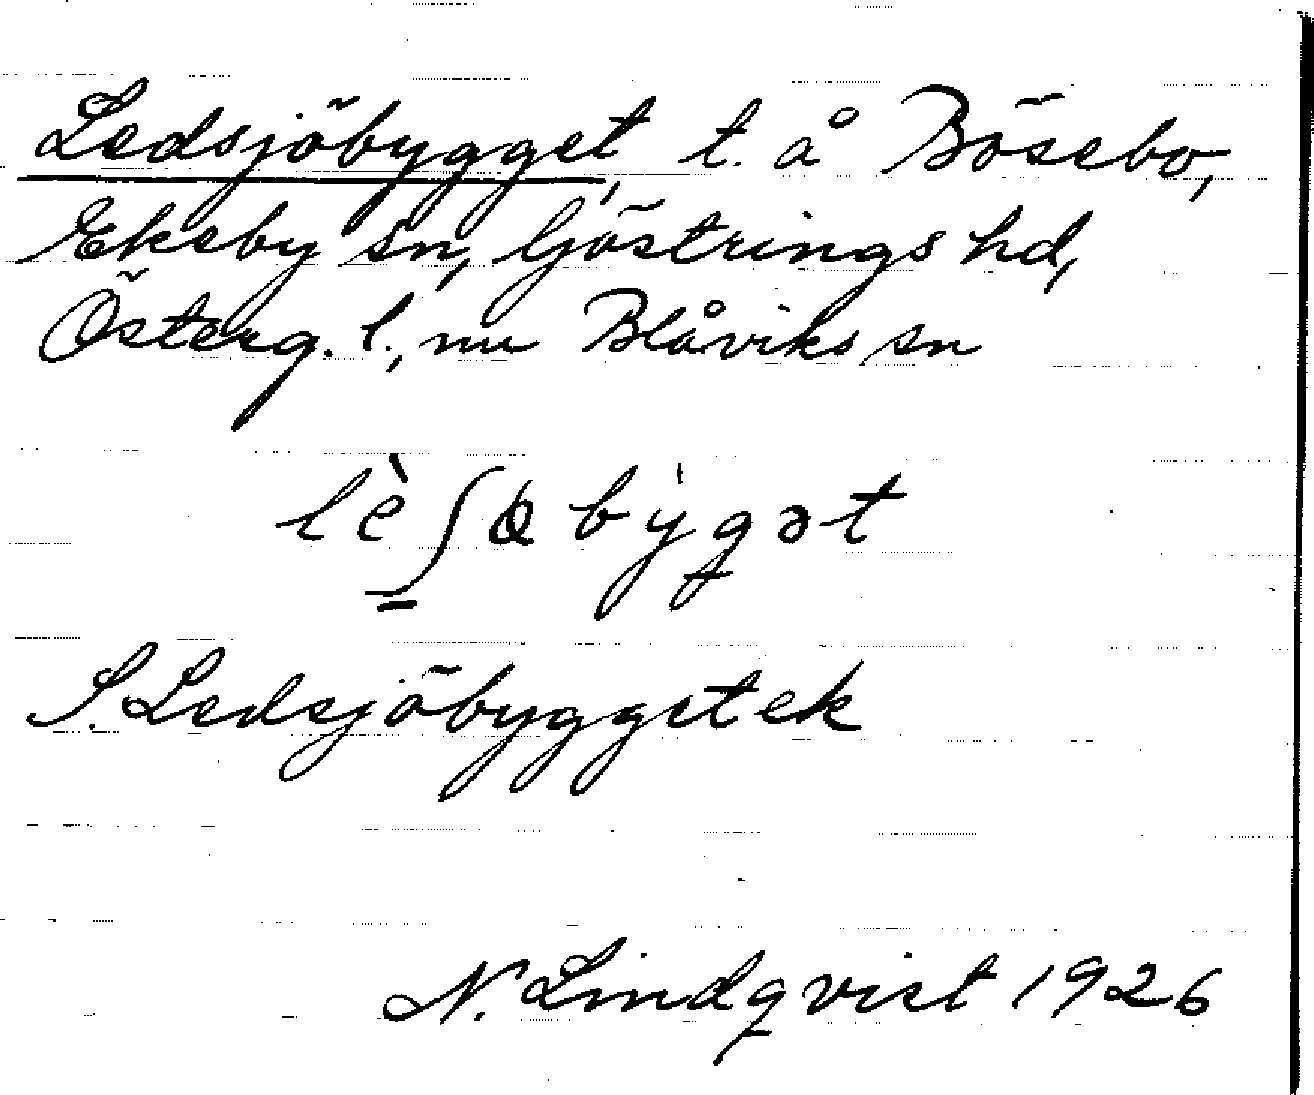 Ledsjöbygget, t. å Bösebo,
Ekeby sn, Göstrings hd,
Österg. l., nu Blåviks sn
lèʃɷbẏgət
S. Ledsjöbygget ek
N. Lindqvist 1926